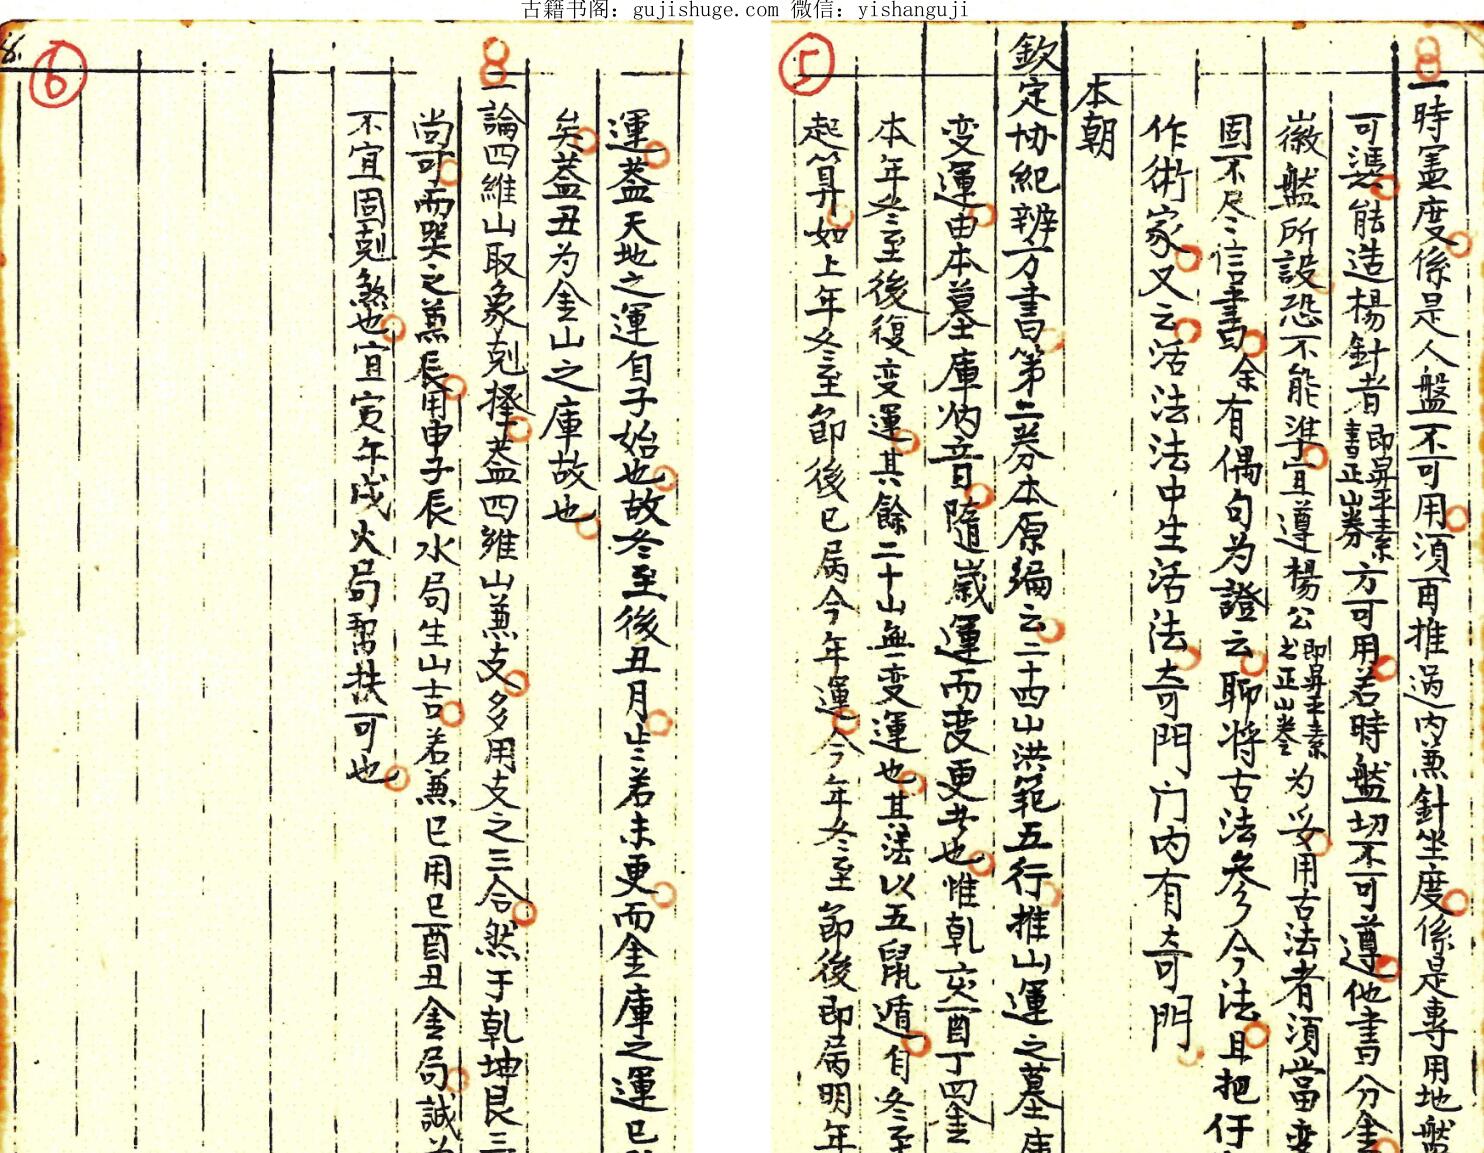 古籍书阁：gujishuge.com 微信：yishanguji
5
一時憲度係是人盤不可用須再推過内兼針坐度係是專用地盤
可憑能造楊針者即昇平素書正山券方可用若時盤切不可遵他書分金
徽盤所設恐不能準宜遵楊公即昇平素之正山卷为妥用古法者須當变
固不尽信書余有偶句为證云聊将古法參今法且把仔
作術家又云活法法中生活法奇門门内有奇門
本朝
欽定协紀辨方書第二券本原編云二十四山洪範五行推山運之墓庫
变運由本墓庫納音隨歲運而变更者也惟乾亥酉丁四金
本年冬至後復变運其餘二十山無变運也其法以五鼠遁自冬至
起算如上年冬至節後已属今年運今年冬至節後即属明年
8.
6
運蓋天地之運自子始也故冬至後丑月若未更而金庫之運已
矣蓋丑为金山之庫故也
一論四維山取象剋擇蓋四維山兼支多用支之三合然于乾坤艮三
尚可而巽之兼辰用申子辰水局生山吉若兼巳用巳酉丑金局誠
不宜固剋煞也宜寅午戌火局幫扶可也